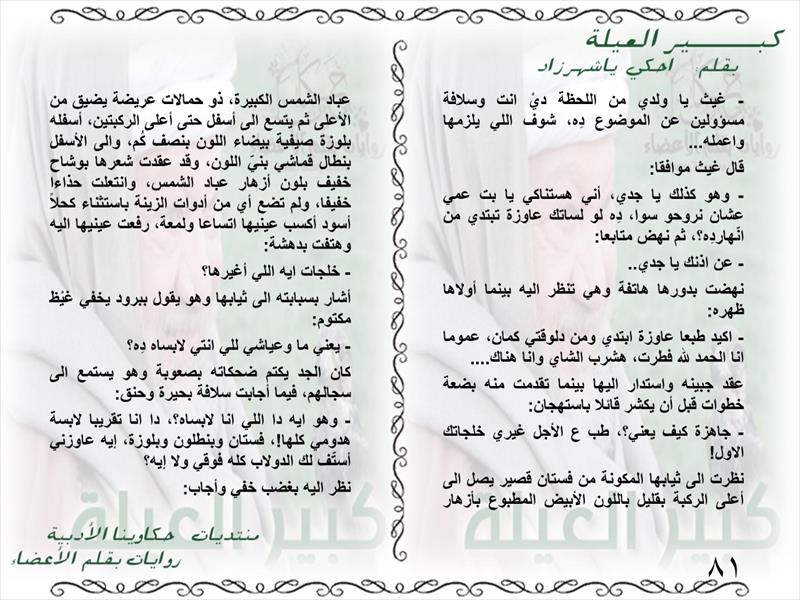 كبـــــــير العيلة
بقلم احكي ياشهرزاد
- غيث يا ولدي من اللحظة ديْ انت وسلافة
مسؤولين عن الموضوع دِه، شوف اللي يلزمها
واعمله...
قال غيث موافقا:
- وهو كذلك يا جدي، أني هستناكي يا بت عمي
عشان نروحو سوا، دِه لو لساتك عاوزة تبتدي من
انّهاردِه؟، ثم نهض متابعا:
- عن اذنك يا جدي..
نهضت بدورها هاتفة وهي تنظر اليه بينما أولاها
ظهره:
- اكيد طبعا عاوزة ابتدي ومن دلوقتي كمان، عموما
انا الحمد لله فطرت، هشرب الشاي وانا هناك....
عقد جبينه واستدار اليها بينما تقدمت منه بضعة
خطوات قبل أن يكشر قائلا باستهجان:
- جاهزة كيف يعني؟، طب ع الأجل غيري خلجاتك
الاول!
نظرت الى ثيابها المكونة من فستان قصير يصل الى
أعلى الركبة بقليل باللون الأبيض المطبوع بأزهار
عباد الشمس الكبيرة، ذو حمالات عريضة يضيق من
الأعلى ثم يتسع الى أسفل حتى أعلى الركبتين، أسفله
بلوزة صيفية بيضاء اللون بنصف كُم، والى الأسفل
بنطال قماشي بنيّ اللون، وقد عقدت شعرها بوشاح
خفيف بلون أزهار عباد الشمس، وانتعلت حذاءا
خفيفا، ولم تضع أي من أدوات الزينة باستثناء كحلاً
أسود أكسب عينيها اتساعا ولمعة، رفعت عينيها اليه
وهتفت بدهشة:
- خلجات ايه اللي أغيرها؟
أشار بسبابته الى ثيابها وهو يقول ببرود يخفي غيْظ
مكتوم:
- يعني ما وعياشي للي انتي لابساه دِه؟
كان الجد يكتم ضحكاته بصعوبة وهو يستمع الى
سجالهم، فيما أجابت سلافة بحيرة وحنق:
- وهو ايه دا اللي انا لابساه؟، دا انا تقريبا لابسة
هدومي كلها!، فستان وبنطلون وبلوزة، إيه عاوزني
أستّف لك الدولاب كله فوقي ولا إيه؟
نظر اليه بغضب خفي وأجاب:
كبير العيلة
كبير العيلة
منتديات حكاوينا الأدبية
روايات بقلم الأعضاء
٨١